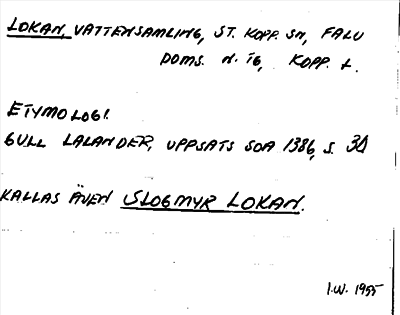 LOKAN, VATTENSAMLING, ST. KOPP. SN, FALU
DOMS. N. TG, KOPP. L.
ETYMOLOGI.
GULL LALANDER, UPPSATS SOA 1386, S. 30
KALLAS ÄVEN SLOGMYR LOKAN.
I.W. 1955